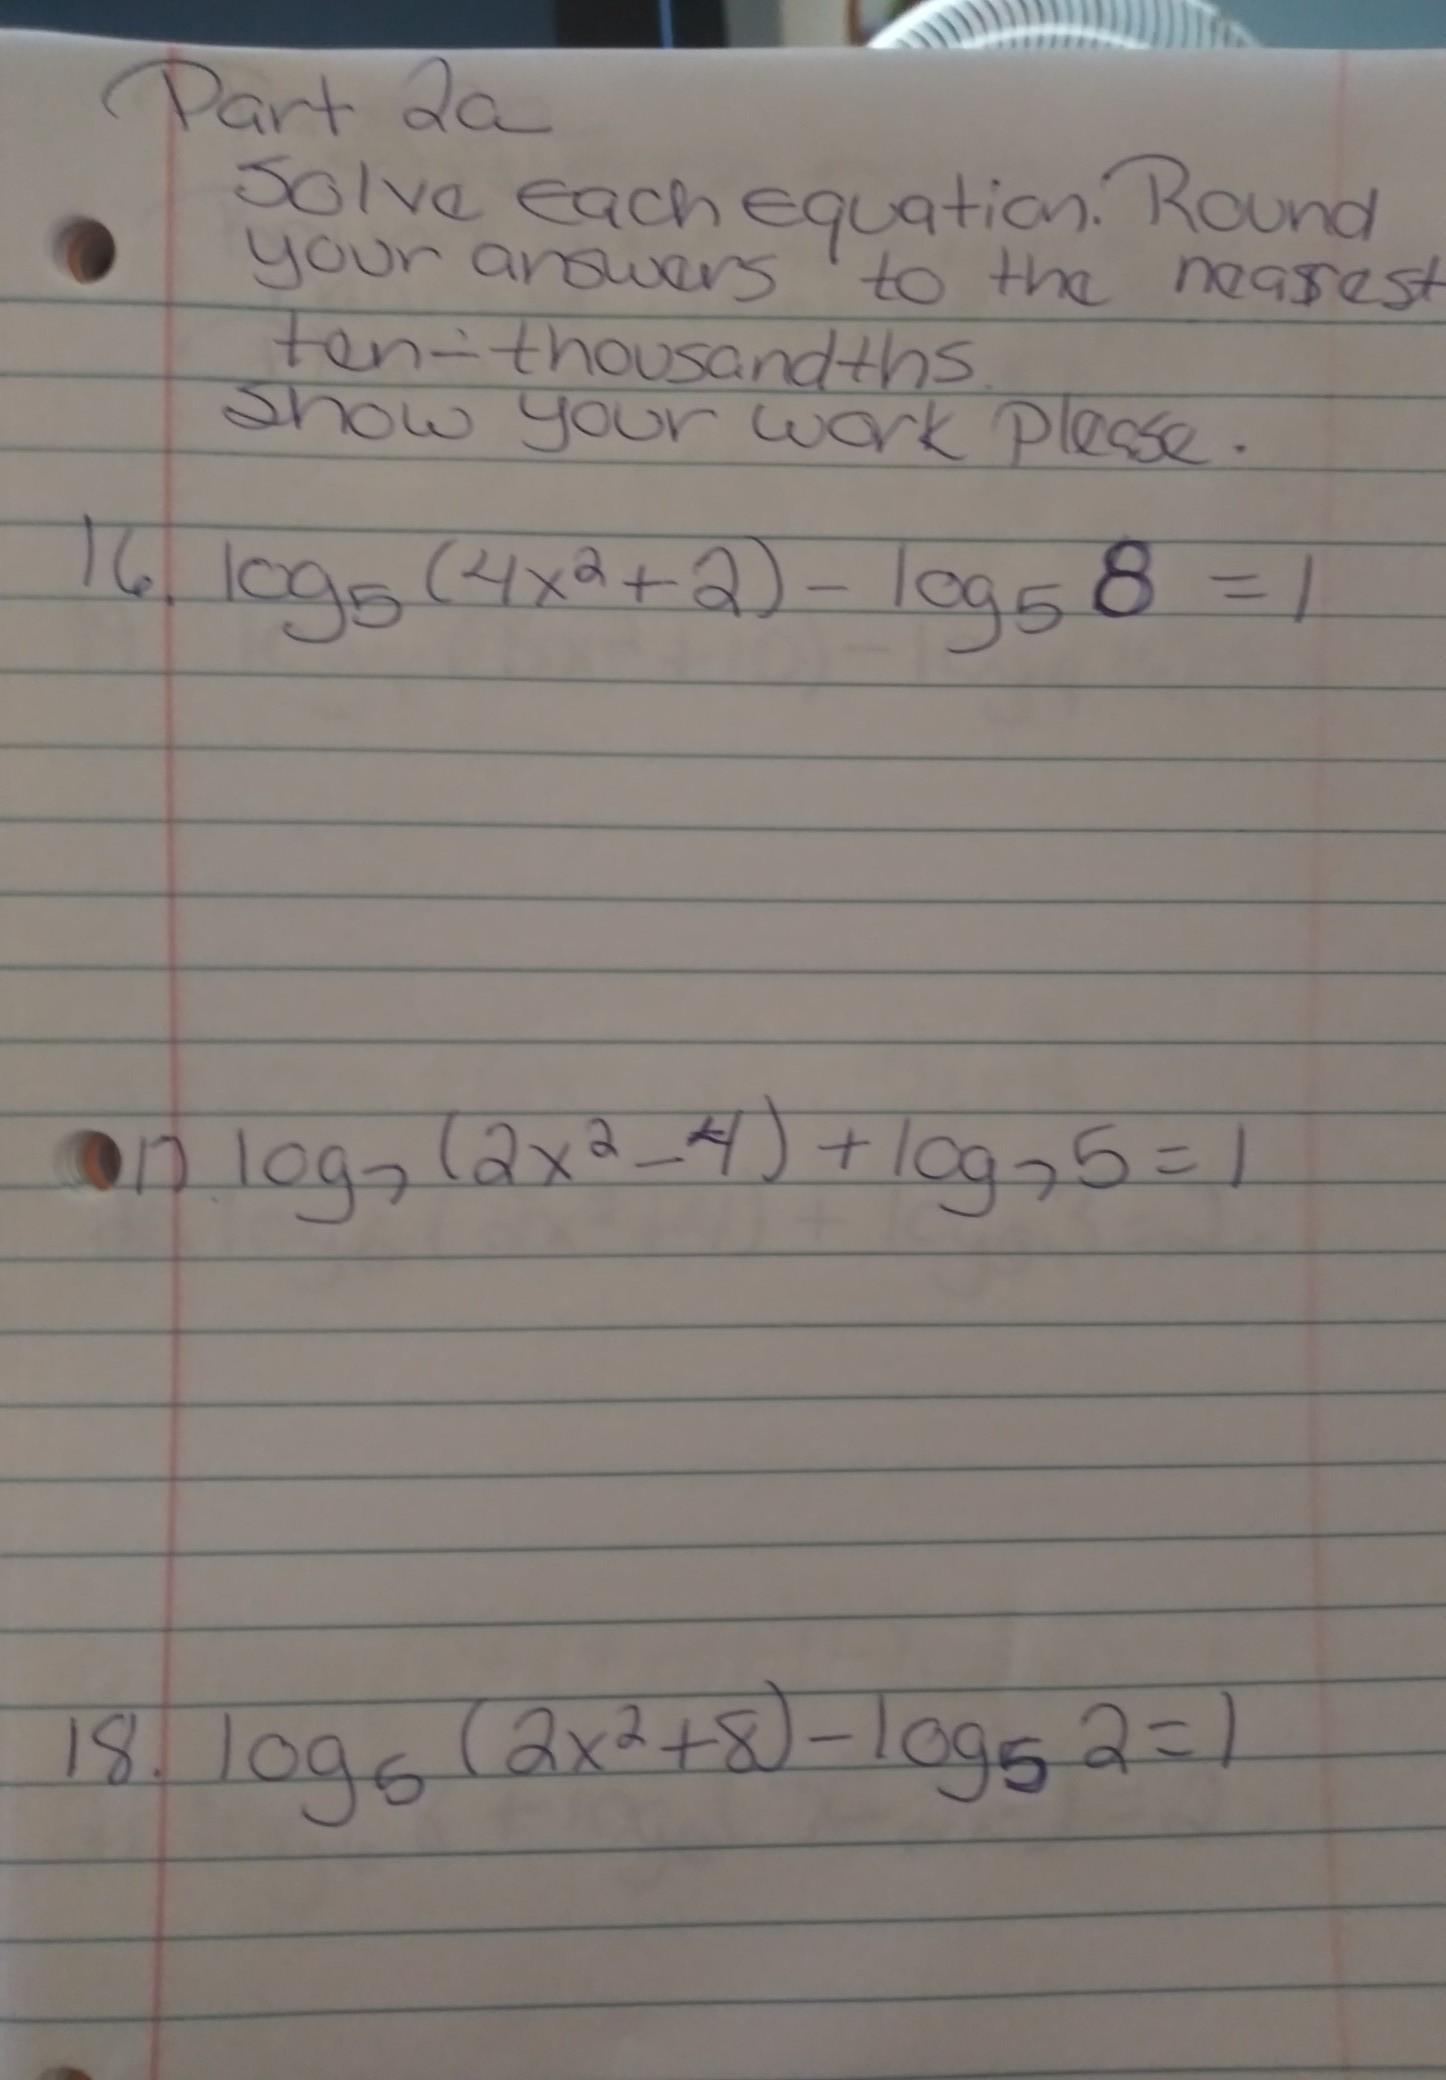 Part 2a
Solve each equation. Round
your answers to the nearest
ten-thousandths.
Show your work please.
16. log₅ (4x² + 2) - log₅ 8 = 1
17. log₇ (2x² - 4) + log₇ 5 = 1
18. log₅ (2x² + 8) - log₅ 2 = 1